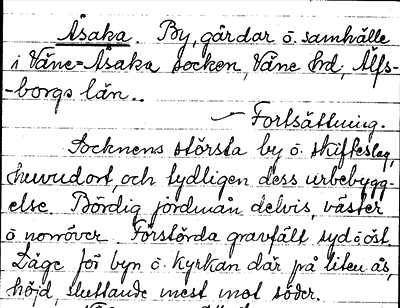 Åsaka. By, gårdar o. samhälle
i Väne-Åsaka socken, Väne hd, Älfs-
-borgs län..
Fortsättning.
Socknens största by o. skifteslag,
huvudort, och tydligen dess urbebygg-
else. Bördig jordmån delvis, väster
o norröver. Förstörda gravfält syd o öst.
Läge för byn o. kyrkan där på liten ås,
höjd, sluttande mest mot söder.